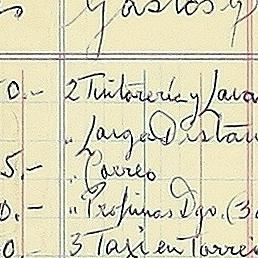 Gastos y
0.- 2 Tintorería y Lava
" Larga Distan
5.- " Correo
0.- " Propinas Dgo. (3
0. 3 Taxi en Torre